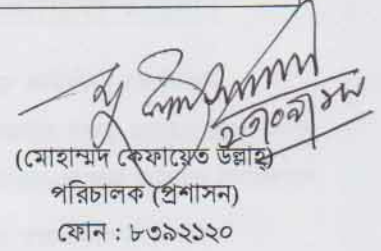 (মোহাম্মদ কেফায়েত উল্লাহ)
পরিচালক (প্রশাসন)
ফোন : ৮৩৯২১২০